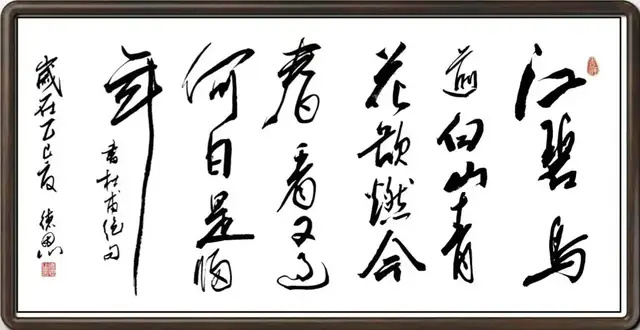 江碧鸟
逾白山青
花欲燃今
春看又过
何日是归
年
书杜甫绝句
歲在乙巳夏 德